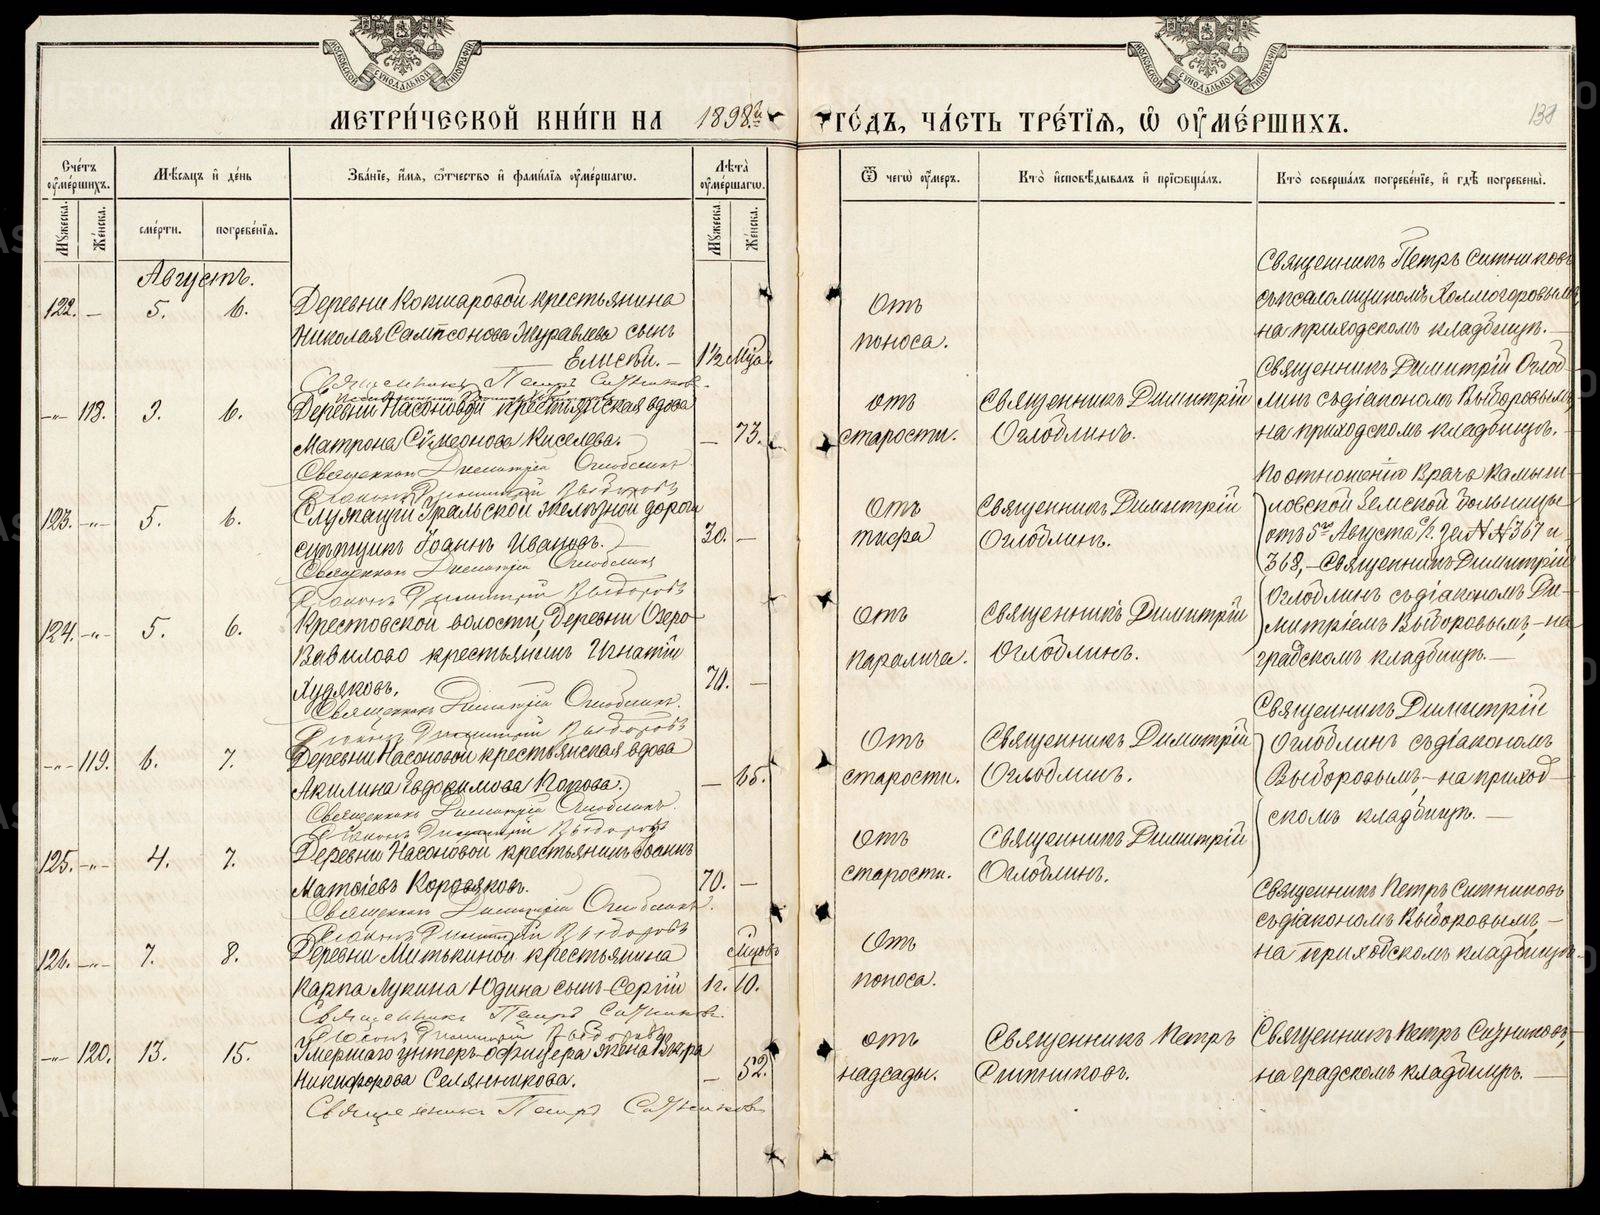 МОСКОВСКОЙ СѴНОДАЛЬНОЙ ТИПОГРАФІИ
МОСКОВСКОЙ СѴНОДАЛЬНОЙ ТИПОГРАФІИ
МЕТРИ́ЧЕСКОЙ КНИ́ГИ НА 1898й ГО́ДЪ, ЧА́СТЬ ТРЕ́ТЇѦ, Ѡ҆ ОУ҆МЕ́РШИХЪ.
138
Сче́тъ оу҆ме́ршихъ.
Мѣ́сѧцъ и҆ де́нь
Зва́нїе, и҆́мѧ, ѻ҆́тчество и҆ фами́лїѧ оу҆ме́ршагѡ.
Лѣ́та оу҆ме́ршагѡ.
Ѿ чегѡ̀ оу҆́меръ.
Кто̀ и҆сповѣ́дывалъ и҆ прїѡбща́лъ.
Кто̀ соверша́лъ погребе́нїе, и҆ гдѣ̀ погребены̀.
Мꙋ́жеска.
Же́нска.
сме́рти.
погребе́нїѧ.
Мꙋ́жеска.
Же́нска.
Августъ.
122. — 5. 6.
Деревни Кокшаровой крестьянина
Николая Сампсонова Журавлева сынъ
Елисѣй. — 1½ Мца.
Священникъ Петръ Ситниковъ.
Отъ
поноса.
Священникъ Петръ Ситниковъ
съ псаломщикомъ Холмогоровымъ,
на приходскомъ кладбищѣ. —
-"- 118. 3. 6.
Деревни Насоновой крестьянская вдова
Матрона Сѵмеонова Киселева. — 73.
Священникъ Димитрій Оглоблинъ
Діаконъ Димитрій Выборовъ
отъ
старости.
Священникъ Димитрій
Оглоблинъ.
Священникъ Димитрій Оглоб-
линъ съ діакономъ Выборовымъ,
на приходскомъ кладбищѣ. —
123. -"- 5. 6.
Служащій Уральской желѣзной дороги
сцѣпщикъ Іоаннъ Ивановъ. 30. —
Священникъ Димитрій Оглоблинъ
Діаконъ Димитрій Выборовъ
Отъ
тифа
Священникъ Димитрій
Оглоблинъ.
По отношенію Врача Камыш-
ловской Земской больницы
отъ 5го Августа с/г. за №№ 367 и
368, — Священникъ Димитрій
Оглоблинъ съ діакономъ Ди-
митріемъ Выборовымъ, — на
градскомъ кладбищѣ. —
124. -"- 5. 6.
Крестовской волости, Деревни Озеро-
Вавилово крестьянинъ Игнатій
Худяковъ. 70. —
Священникъ Димитрій Оглоблинъ.
Діаконъ Димитрій Выборовъ
Отъ
паралича.
Священникъ Димитрій
Оглоблинъ.
-"- 119. 6. 7.
Деревни Насоновой крестьянская вдова
Акилина Евдокимова Попова. — 65.
Священникъ Димитрій Оглоблинъ.
Діаконъ Димитрій Выборовъ
Отъ
старости.
Священникъ Димитрій
Оглоблинъ.
Священникъ Димитрій
Оглоблинъ съ діакономъ
Выборовымъ, — на приход-
скомъ кладбищѣ. —
125. -"- 4. 7.
Деревни Насоновой крестьянинъ Іоаннъ
Матѳіевъ Коровяковъ. 70. —
Священникъ Димитрій Оглоблинъ.
Діаконъ Димитрій Выборовъ
Отъ
старости.
Священникъ Димитрій
Оглоблинъ.
126. -"- 7. 8.
Деревни Митькиной крестьянина
Карпа Лукина Юдина сынъ Сергій 1г. 10.
Священникъ Петръ Ситниковъ.
Діаконъ Димитрій Выборовъ
Отъ
поноса.
Священникъ Петръ Ситниковъ
съ діакономъ Выборовымъ, —
на приходскомъ кладбищѣ.
-"- 120. 13. 15.
Умершаго унтеръ-офицера жена Вѣра
Никифорова Селянникова. — 52.
Священникъ Петръ Ситниковъ
отъ
надсады.
Священникъ Петръ
Ситниковъ.
Священникъ Петръ Ситниковъ,
на градскомъ кладбищѣ. —